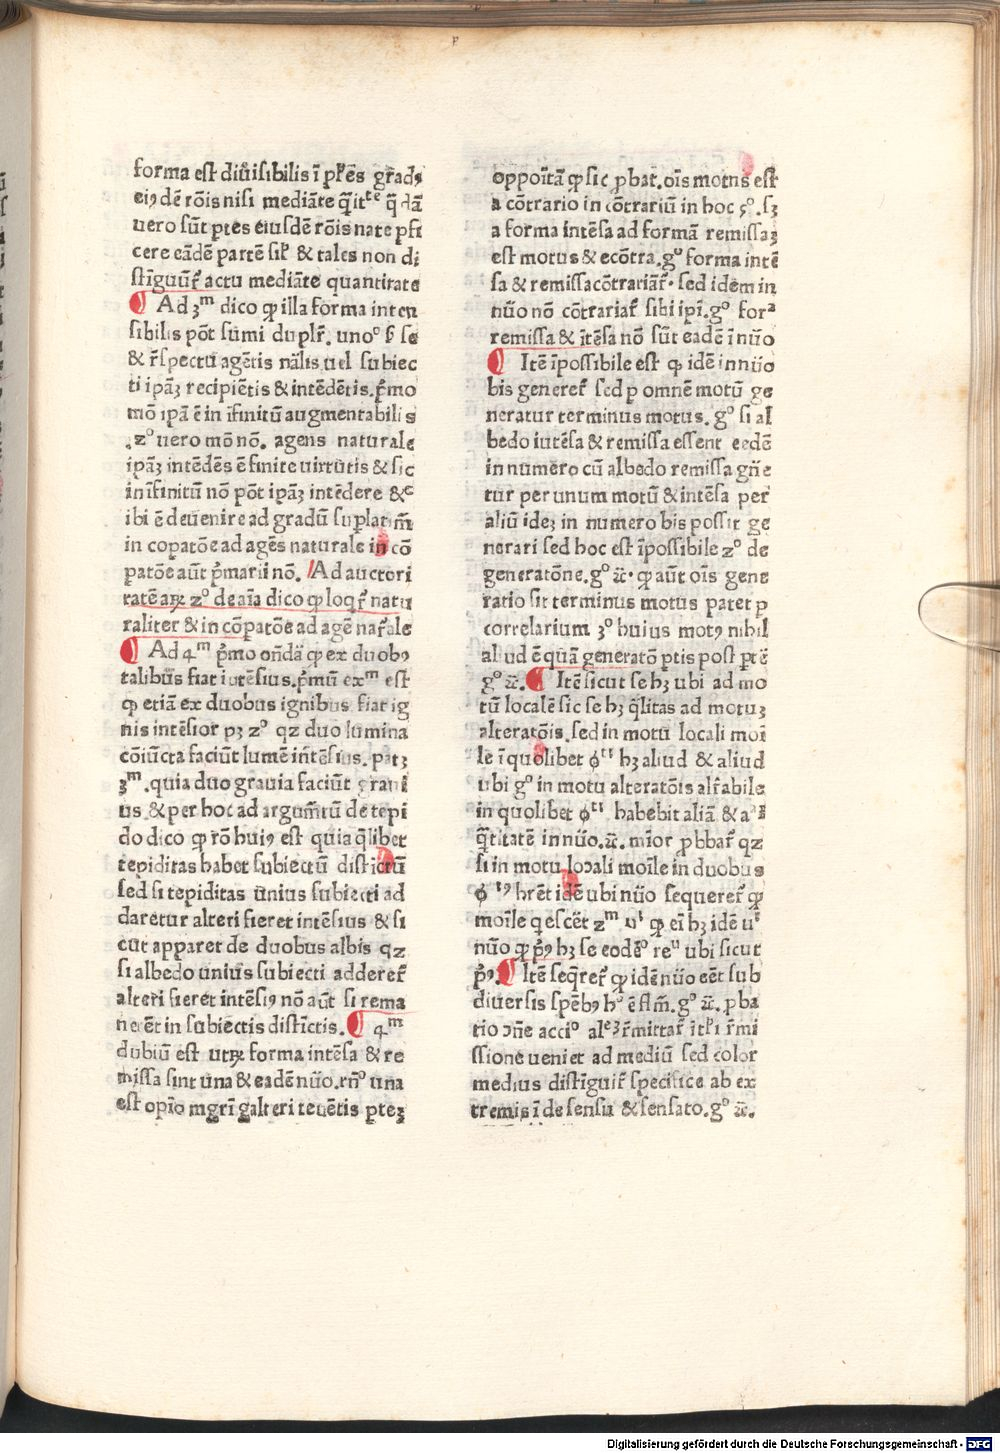 forma est diuisibilis ī ptes grad9
ei9 dē rōis nisi mediāte q̄itte q̄ dā
uero sūt ptes eiusdē rōis nate pfi
cere eādē partē sil & tales non di
stīguūt actu mediāte quantitate
Ad 3m dico ꝙ illa forma inten
sibilis pōt sumi duplr. unoo
& rspectu agētis nālis uel subiec
ti ipāʒ recipiētis & intēdētis. pmo
mō ipā ē in īfinitū augmentabilis
.2o uero mō nō. agens naturale
ipāʒ intēdēs ē finite uirtutis & sic
in īfinitū nō pōt ipāʒ intēdere &c
ibi ē deuenire ad gradū suplatm̄
in copatōe ad agēs naturale in cō
patōe aūt pmarii nō. Ad auctori
tatē arꝝ 2o de aīa dico ꝙ loqr natu
raliter & in cōpatōe ad agē narale
Ad 4m pmo on̄dā ꝙ ex duob9
talibus fiat iutēsius. pmū exm est
ꝙ etiā ex duobus ignibus fiat ig
nis intēsior pʒ 2o qz duo lumina
cōiūcta faciūt lumē intēsius. patʒ
3m. quia duo grauia faciūt graui
us & per hoc ad argum̄tū de tepi
do dico ꝙ rō hui9 est quia q̄libet
tepiditas habet subiectū districtū
sed si tepiditas unius subiecti ad
daretur alteri fieret intēsius & si
cut apparet de duobus albis qz
si albedo unius subiecti adderet
alteri fieret intēsi9 nō aūt si rema
nerēt in subiectis distictis. 4m
dubiū est utꝝ forma intēsa & re
missa sint una & eadē nūo. rn̄o una
est opīo mgrī galteri teuētis pteʒ
oppoitā ꝙ sic pbat. oīs motus est
a cōtrario in cōtrariū in hoc 5o. sʒ
a forma intēsa ad formā remissaʒ
est motus & ecōtra. go forma intē
sa & remissa cōtrariār. sed idem in
nūo nō cōtrariat sibi ipi. go fora
remissa & ītēsa nō sūt eadē ī nūo
Itē īpossibile est ꝙ idē in nūo
bis generet sed p omnē motū ge
neratur terminus motus. go si al
bedo iutēsa & remissa essent eedē
in numero cū albedo remissa gn̄e
tur per unum motū & intēsa per
aliū ideʒ in numero bis possit ge
nerari sed hoc est īpossibile 2o de
generatōne. go &c. ꝙ aūt oīs gene
ratio sit terminus motus patet p
correlarium 3o huius mot9 nihil
aliud ē quā generatō ptis post ptē
go &c. Itē sicut se hʒ ubi ad mo
tū localē sic se hʒ q̄litas ad motuʒ
alteratōis. sed in motu locali moī
le ī quolibet hʒ aliud & aliud
ubi go in motu alteratōis alrabile
in quolibet habebit aliā & aaʒ
q̄titatē in nūo. &c. mīor pbbar qz
si in motu lopali moīle in duobus
hrēt idē ubi nūo sequeret ꝙ
moīle qescēt 2m ꝙ eī hʒ idē
nūo ꝙ p9 hʒ se eodēo ubi sicut
p9. Itē seqret ꝙ idē nūo eēt sub
diuersis spēb9 go &c. pba
tio ↄn̄e accio rmittar
ssione ueniet ad mediū sed color
medius distīguit specifice ab ex
tremis ī de sensu & sensato. go &c.
Digitalisierung gefördert durch die Deutsche Forschungsgemeinschaft - DFG